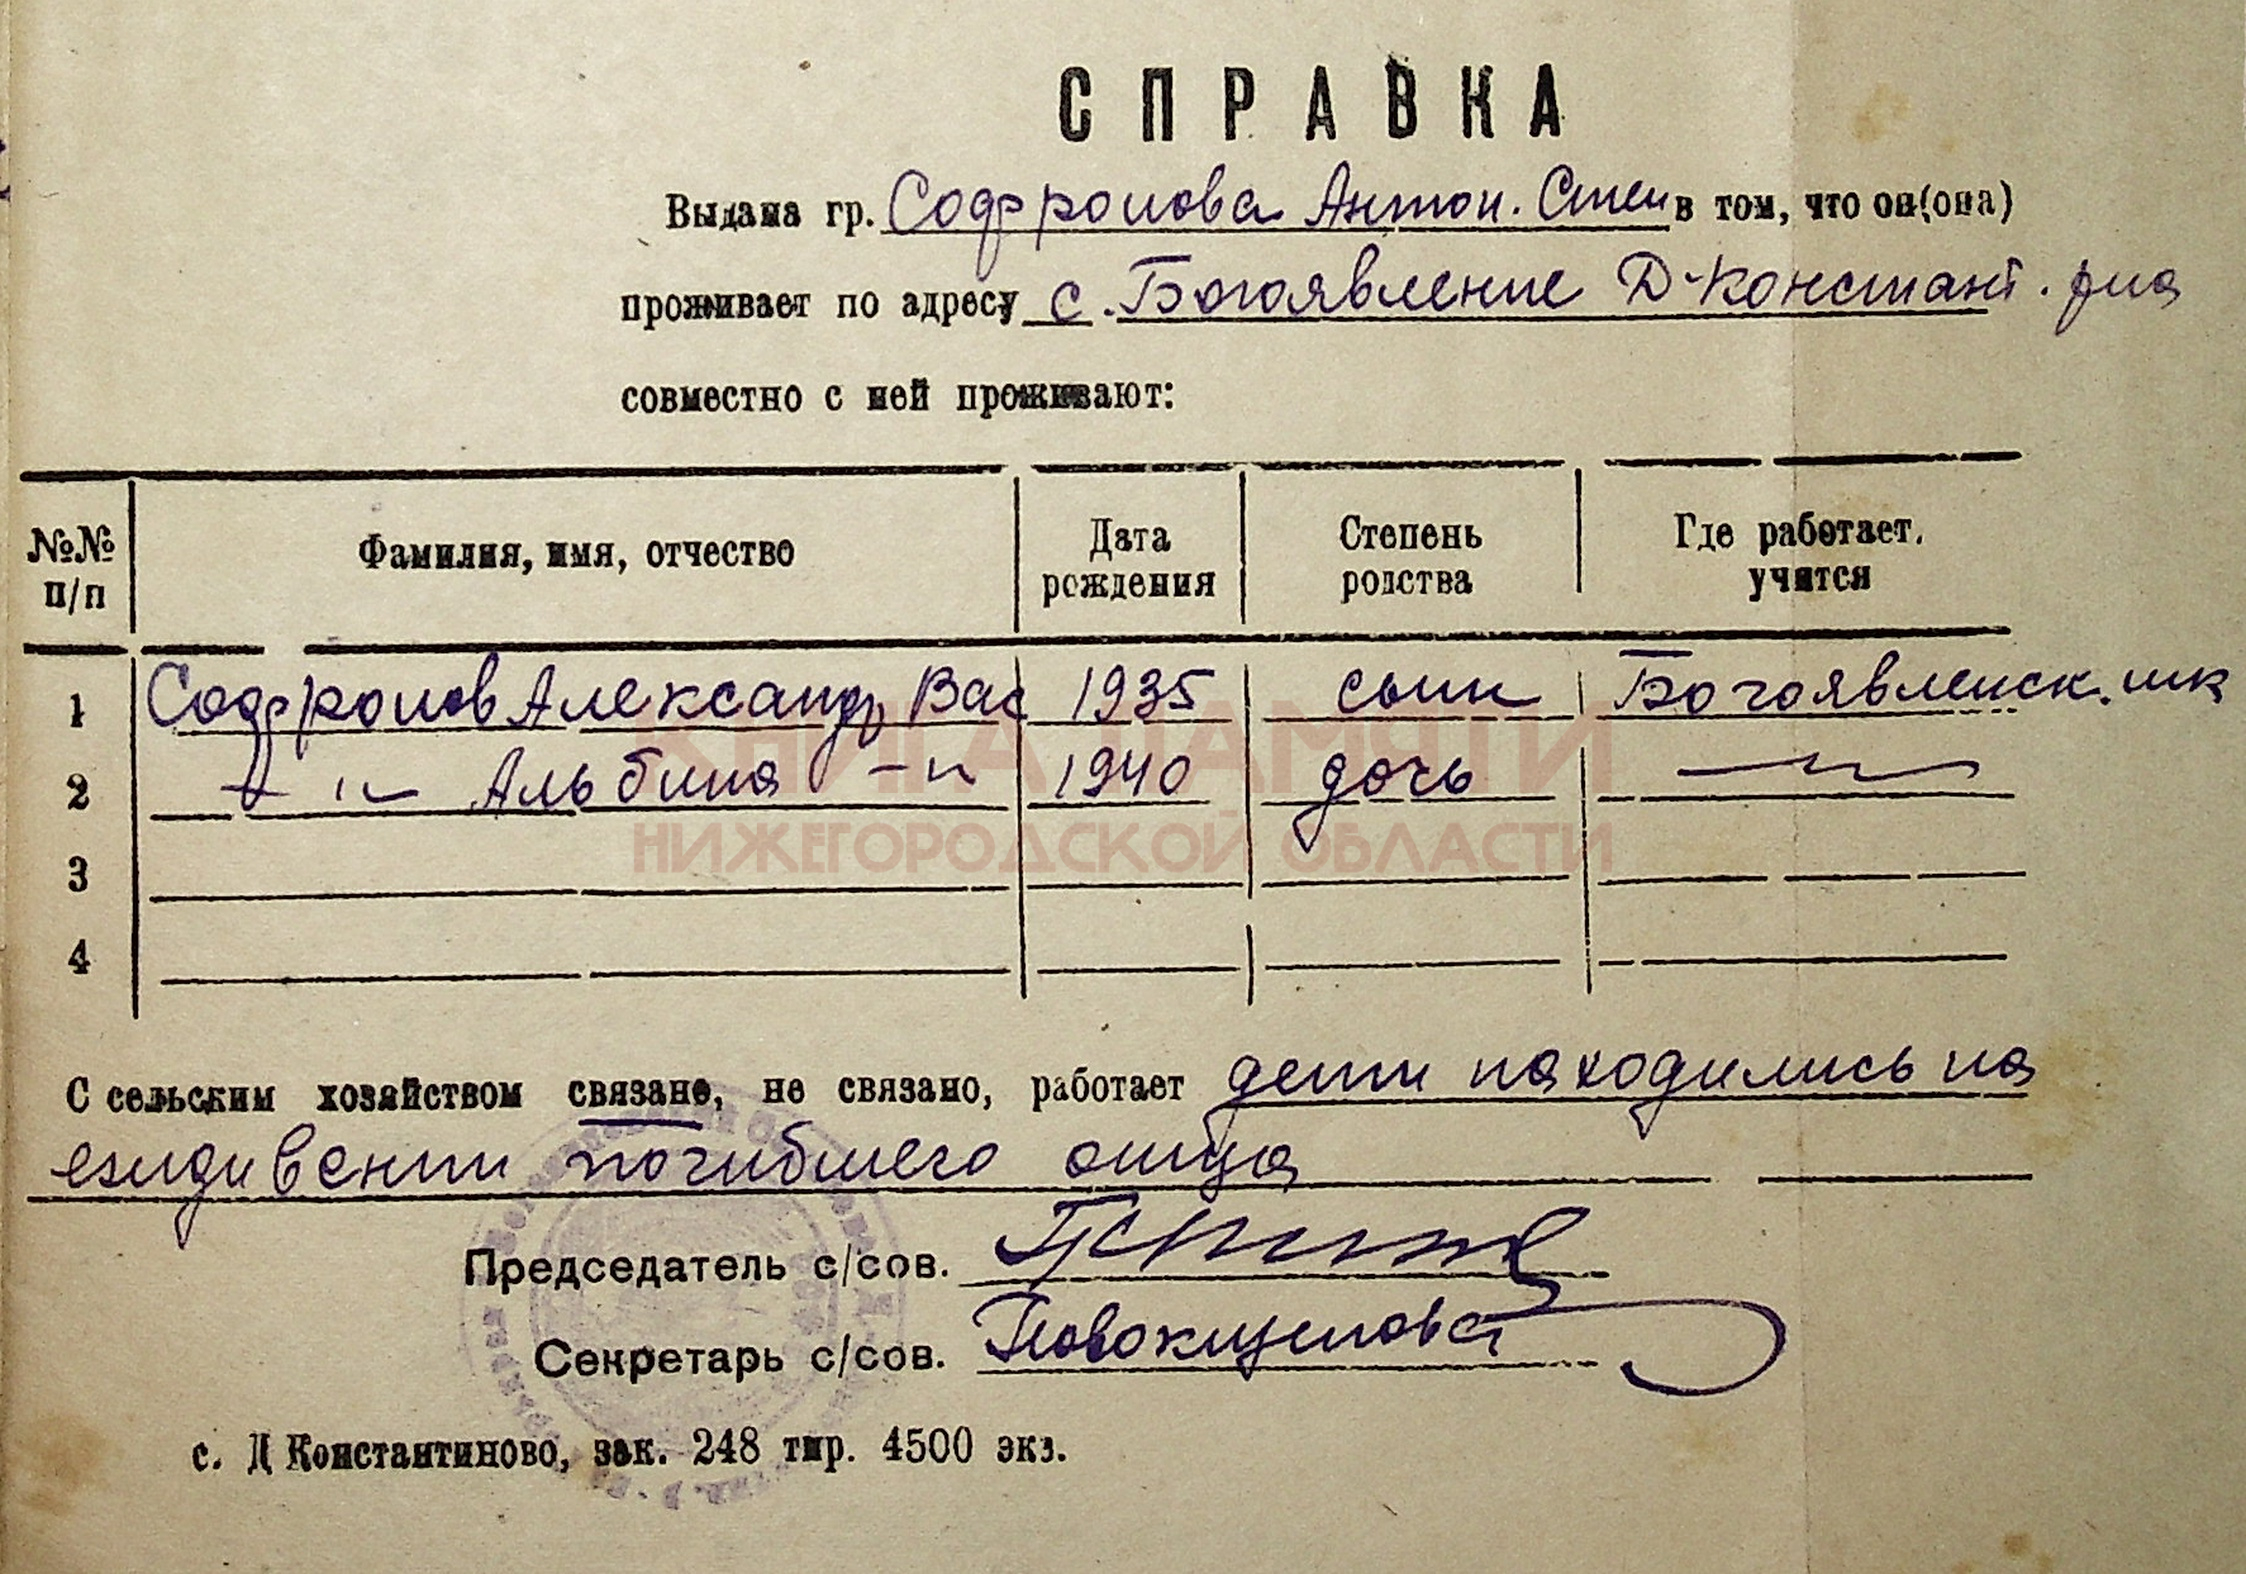 СПРАВКА
Выдана гр. Софронова Антон. Степ в том, что он(она)
проживает по адресу с. Богоявление Д-Констант. р-на
совместно с ней проживают:
№№ п/п Фамилия, имя, отчество Дата рождения Степень родства Где работает, учится
1 Софронов Александр Вас 1935 сын Богоявленск. шк
2 -"- Альбина -"- 1940 дочь -"-
3
4
КНИГА ПАМЯТИ
НИЖЕГОРОДСКОЙ ОБЛАСТИ
С сельским хозяйством связано, не связано, работает дети находились на
еждивении погибшего отца
Председатель с/сов.
Секретарь с/сов. Новокщенова
с. Д Константиново, зак. 248 тир. 4500 экз.